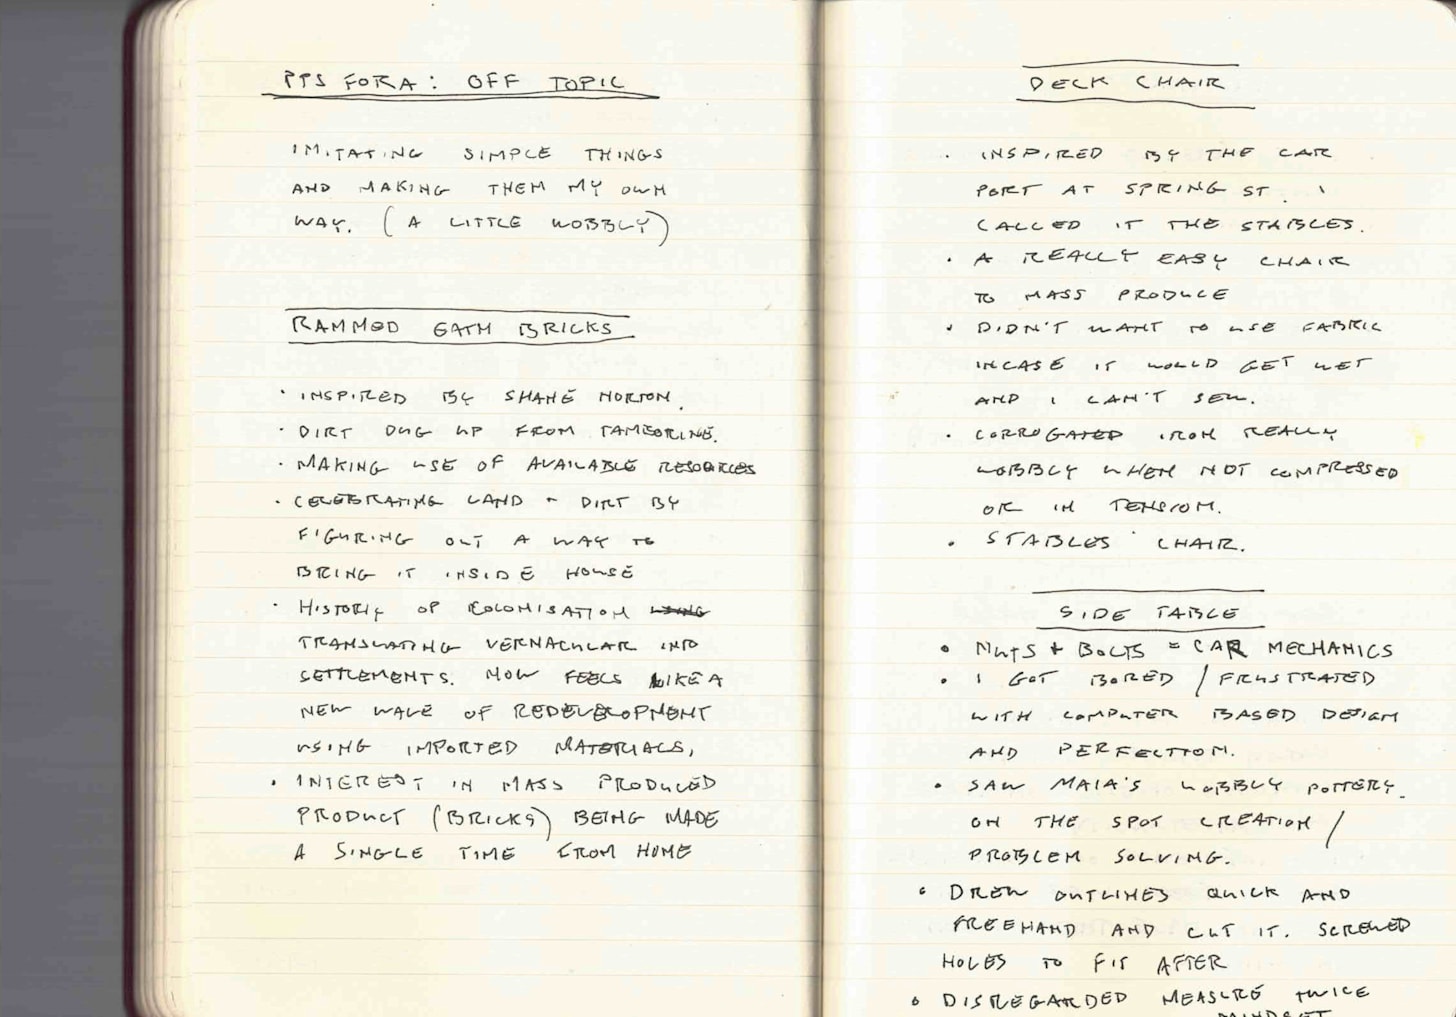 PPS FORA: OFF TOPIC
IMITATING SIMPLE THINGS
AND MAKING THEM MY OWN
WAY. (A LITTLE WOBBLY)
RAMMED EATH BRICKS
• INSPIRED BY SHANE NORTON.
• DIRT DUG UP FROM TAMBORINE.
• MAKING USE OF AVAILABLE RESOURCES
• CELEBRATING LAND + DIRT BY
FIGURING OUT A WAY TO
BRING IT INSIDE HOUSE
• HISTORY OF COLONISATION USING
TRANSLATING VERNACULAR INTO
SETTLEMENTS. NOW FEELS LIKE A
NEW WAVE OF REDEVELOPMENT
USING IMPORTED MATERIALS,
• INTEREST IN MASS PRODUCED
PRODUCT (BRICKS) BEING MADE
A SINGLE TIME FROM HOME
DECK CHAIR
• INSPIRED BY THE CAR
PORT AT SPRING ST. I
CALLED IT THE STABLES.
• A REALLY EASY CHAIR
TO MASS PRODUCE
• DIDN'T WANT TO USE FABRIC
INCASE IT WOULD GET WET
AND I CAN'T SEW.
• CORROGATED IRON REALLY
WOBBLY WHEN NOT COMPRESSED
OR IN TENSION.
• STABLES' CHAIR.
SIDE TABLE
• NUTS + BOLTS = CAR MECHANICS
• I GOT BORED / FRUSTRATED
WITH COMPUTER BASED DESIGN
AND PERFECTION.
• SAW MAIA'S WOBBLY POTTERY.
ON THE SPOT CREATION /
PROBLEM SOLVING.
• DREW OUTLINES QUICK AND
FREEHAND AND CUT IT. SCREWED
HOLES TO FIT AFTER
• DISREGARDED MEASURE TWICE
MINDSET